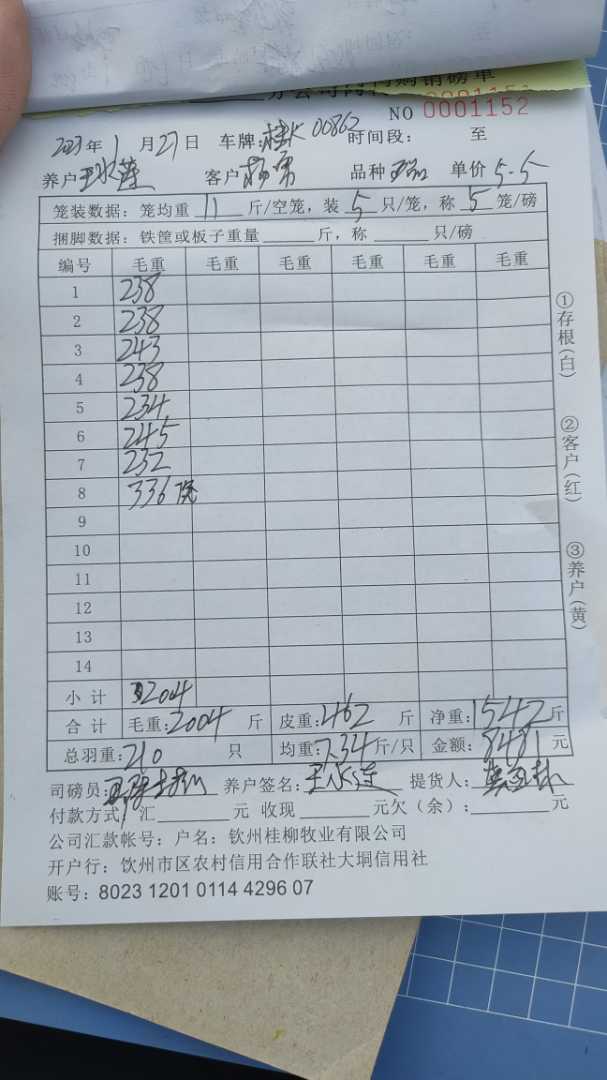 分公司门门购销磅单
NO 0001152
2023年1月27日 车牌:桂K 00862 时间段: 至
养户王水莲 客户杨勇 品种 单价5-5
笼装数据: 笼均重 11 斤/空笼, 装 5 只/笼, 称 5 笼/磅
捆脚数据: 铁筐或板子重量 斤, 称 只/磅
编号 毛重 毛重 毛重 毛重 毛重 毛重
1 238
2 238
3 243
4 238
5 234
6 245
7 232
8 336
9
10
11
12
13
14
小计 2004
合计 毛重:2004 斤 皮重:462 斤 净重:1542斤
总羽重:210 只 均重:7.34斤/只 金额:8481元
司磅员: 养户签名:王水莲 提货人:
付款方式 汇 元 收现 元欠(余): 元
公司汇款帐号: 户名: 钦州桂柳牧业有限公司
开户行: 饮州市区农村信用合作联社大垌信用社
账号: 8023 1201 0114 4296 07
①存根(白)
②客户(红)
③养户(黄)